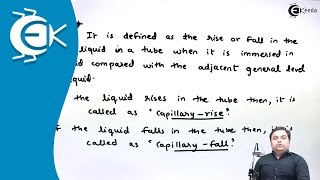 EK
Ekeeda
It is defined as the rise or fall in the
liquid in a tube when it is immersed in
compared with the adjacent general level
quid.
the liquid rises in the tube then, it is
called as "Capillary-rise"
the liquid falls in the tube then, it is
called as "Capillary-fall"